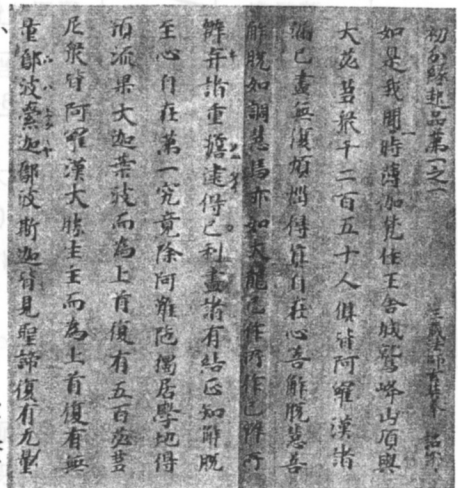 初分緣起品第一之一 三藏法師玄奘奉 詔譯
如是我聞一時薄伽梵住王舍城鷲峰山頂與
大苾芻衆千二百五十人俱皆阿羅漢諸
漏已盡無復煩惱得真自在心善解脫慧善
解脫如調慧馬亦如大龍已作所作已辦所
辦棄諸重擔逮得己利盡諸有結正知解脫
至心自在第一究竟除阿難陁獨居學地得
預流果大迦葉波而為上首復有五百苾芻
尼衆皆阿羅漢大勝生主而為上首復有無
量鄔波索迦鄔波斯迦皆見聖諦復有无量